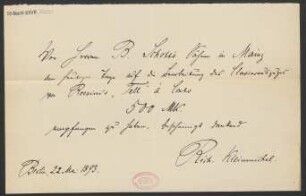 Von Herrn B. Schott's Söhne in Mainz
am heutigen Tage auf die Bearbeitung des Clavierauszuges
von Rossini's „Tell" à Conto
500 Mk
empfangen zu haben, bescheinigt dankend
Rich. Kleinmichel.
Berlin 22. Mai 1893.